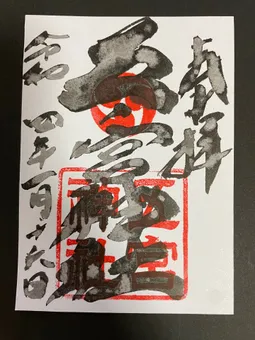 奉拝
五宮神社
令和四年一月十六日